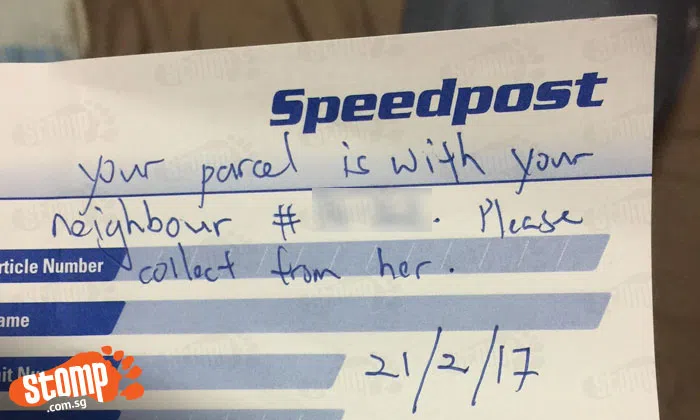 Speedpost
your parcel is with your
neighbour # . Please
collect from her.
rticle Number
ame
it Nu
21/2/17
stomp
.com.sg